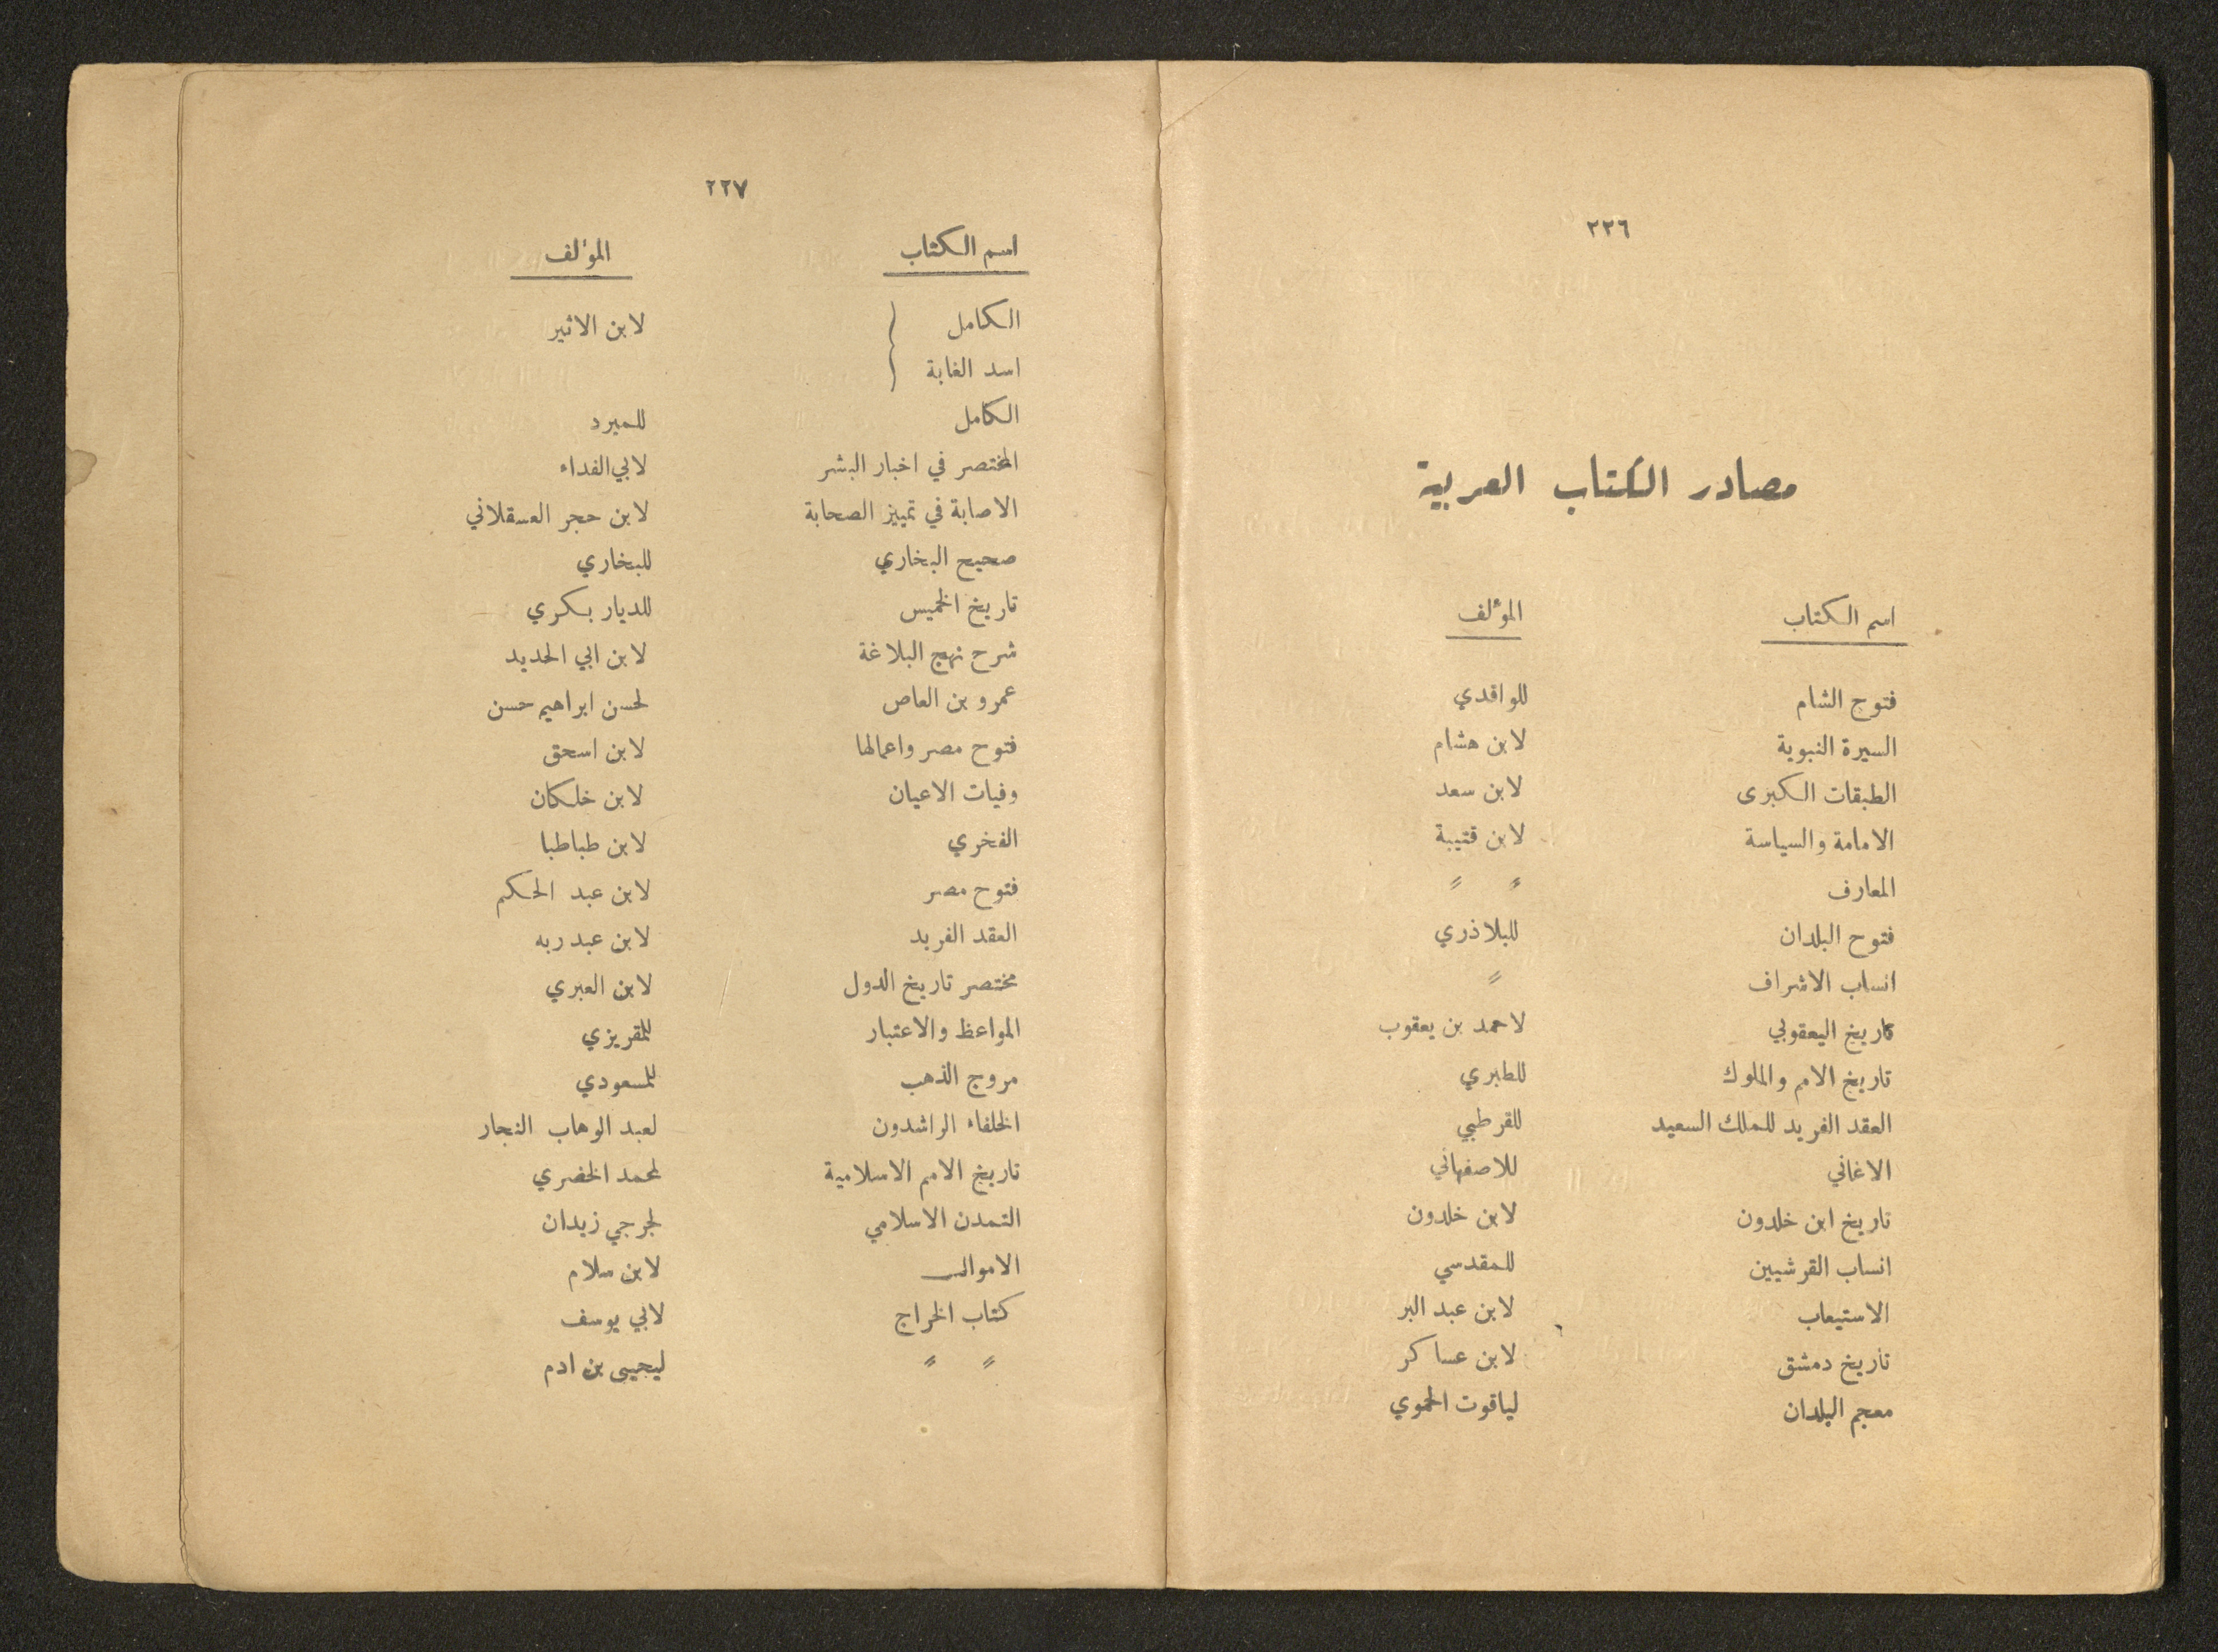 ٢٢٦
مصادر الكتاب العربية
اسم الكتاب المؤلف
فتوح الشام للواقدي
السيرة النبوية لابن هشام
الطبقات الكبرى لابن سعد
الامامة والسياسة لابن قتيبة
المعارف " "
فتوح البلدان للبلاذري
انساب الاشراف "
تاريخ اليعقوبي لاحمد بن يعقوب
تاريخ الامم والملوك للطبري
العقد الفريد للملك السعيد للقرطبي
الاغاني للاصفهاني
تاريخ ابن خلدون لابن خلدون
انساب القرشيين للمقدسي
الاستيعاب لابن عبد البر
تاريخ دمشق لابن عساكر
معجم البلدان لياقوت الحموي
٢٢٧
اسم الكتاب المؤلف
الكامل لابن الاثير
اسد الغابة
الكامل للمبرد
المختصر في اخبار البشر لابي الفداء
الاصابة في تمييز الصحابة لابن حجر العسقلاني
صحيح البخاري للبخاري
تاريخ الخميس للديار بكري
شرح نهج البلاغة لابن ابي الحديد
عمرو بن العاص لحسن ابراهيم حسن
فتوح مصر واعمالها لابن اسحق
وفيات الاعيان لابن خلكان
الفخري لابن طباطبا
فتوح مصر لابن عبد الحكم
العقد الفريد لابن عبد ربه
مختصر تاريخ الدول لابن العبري
المواعظ والاعتبار للمقريزي
مروج الذهب للمسعودي
الخلفاء الراشدون لعبد الوهاب النجار
تاريخ الامم الاسلامية لمحمد الخضري
التمدن الاسلامي لجرجي زيدان
الاموال لابن سلام
كتاب الخراج لابي يوسف
" " ليحيى بن ادم